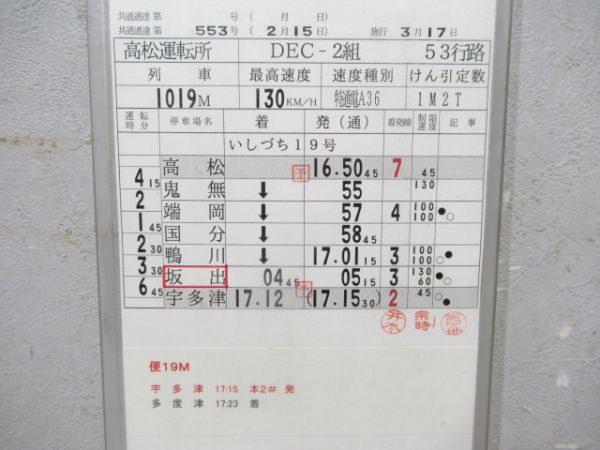 共通通達 第 号 ( 月 日)
共通通達 第 553号 ( 2月 15日) 施行 3月 17日
高松運転所 DEC-2組 53行路
列車 最高速度 速度種別 けん引定数
1019M 130KM/H 特通電A36 1M2T
運転時分 停車場名 着 発(通) 着発線 制限速度 記事
いしづち19号
高松 予 16.50 45 7 45
4 15
鬼無 ↓ 55 130
2
端岡 ↓ 57 4 100 100 ●○
1 45
国分 ↓ 58 45
2 30
鴨川 ↓ 17.01 15 3 100 100 ○●
3 30
坂出 04 45 05 15 3 130 60 ●○
6 45
宇多津 17.12 予 (17.15 30) 2 45 ○●
便19M
宇多津 17:15 本2# 発
多度津 17:23 着